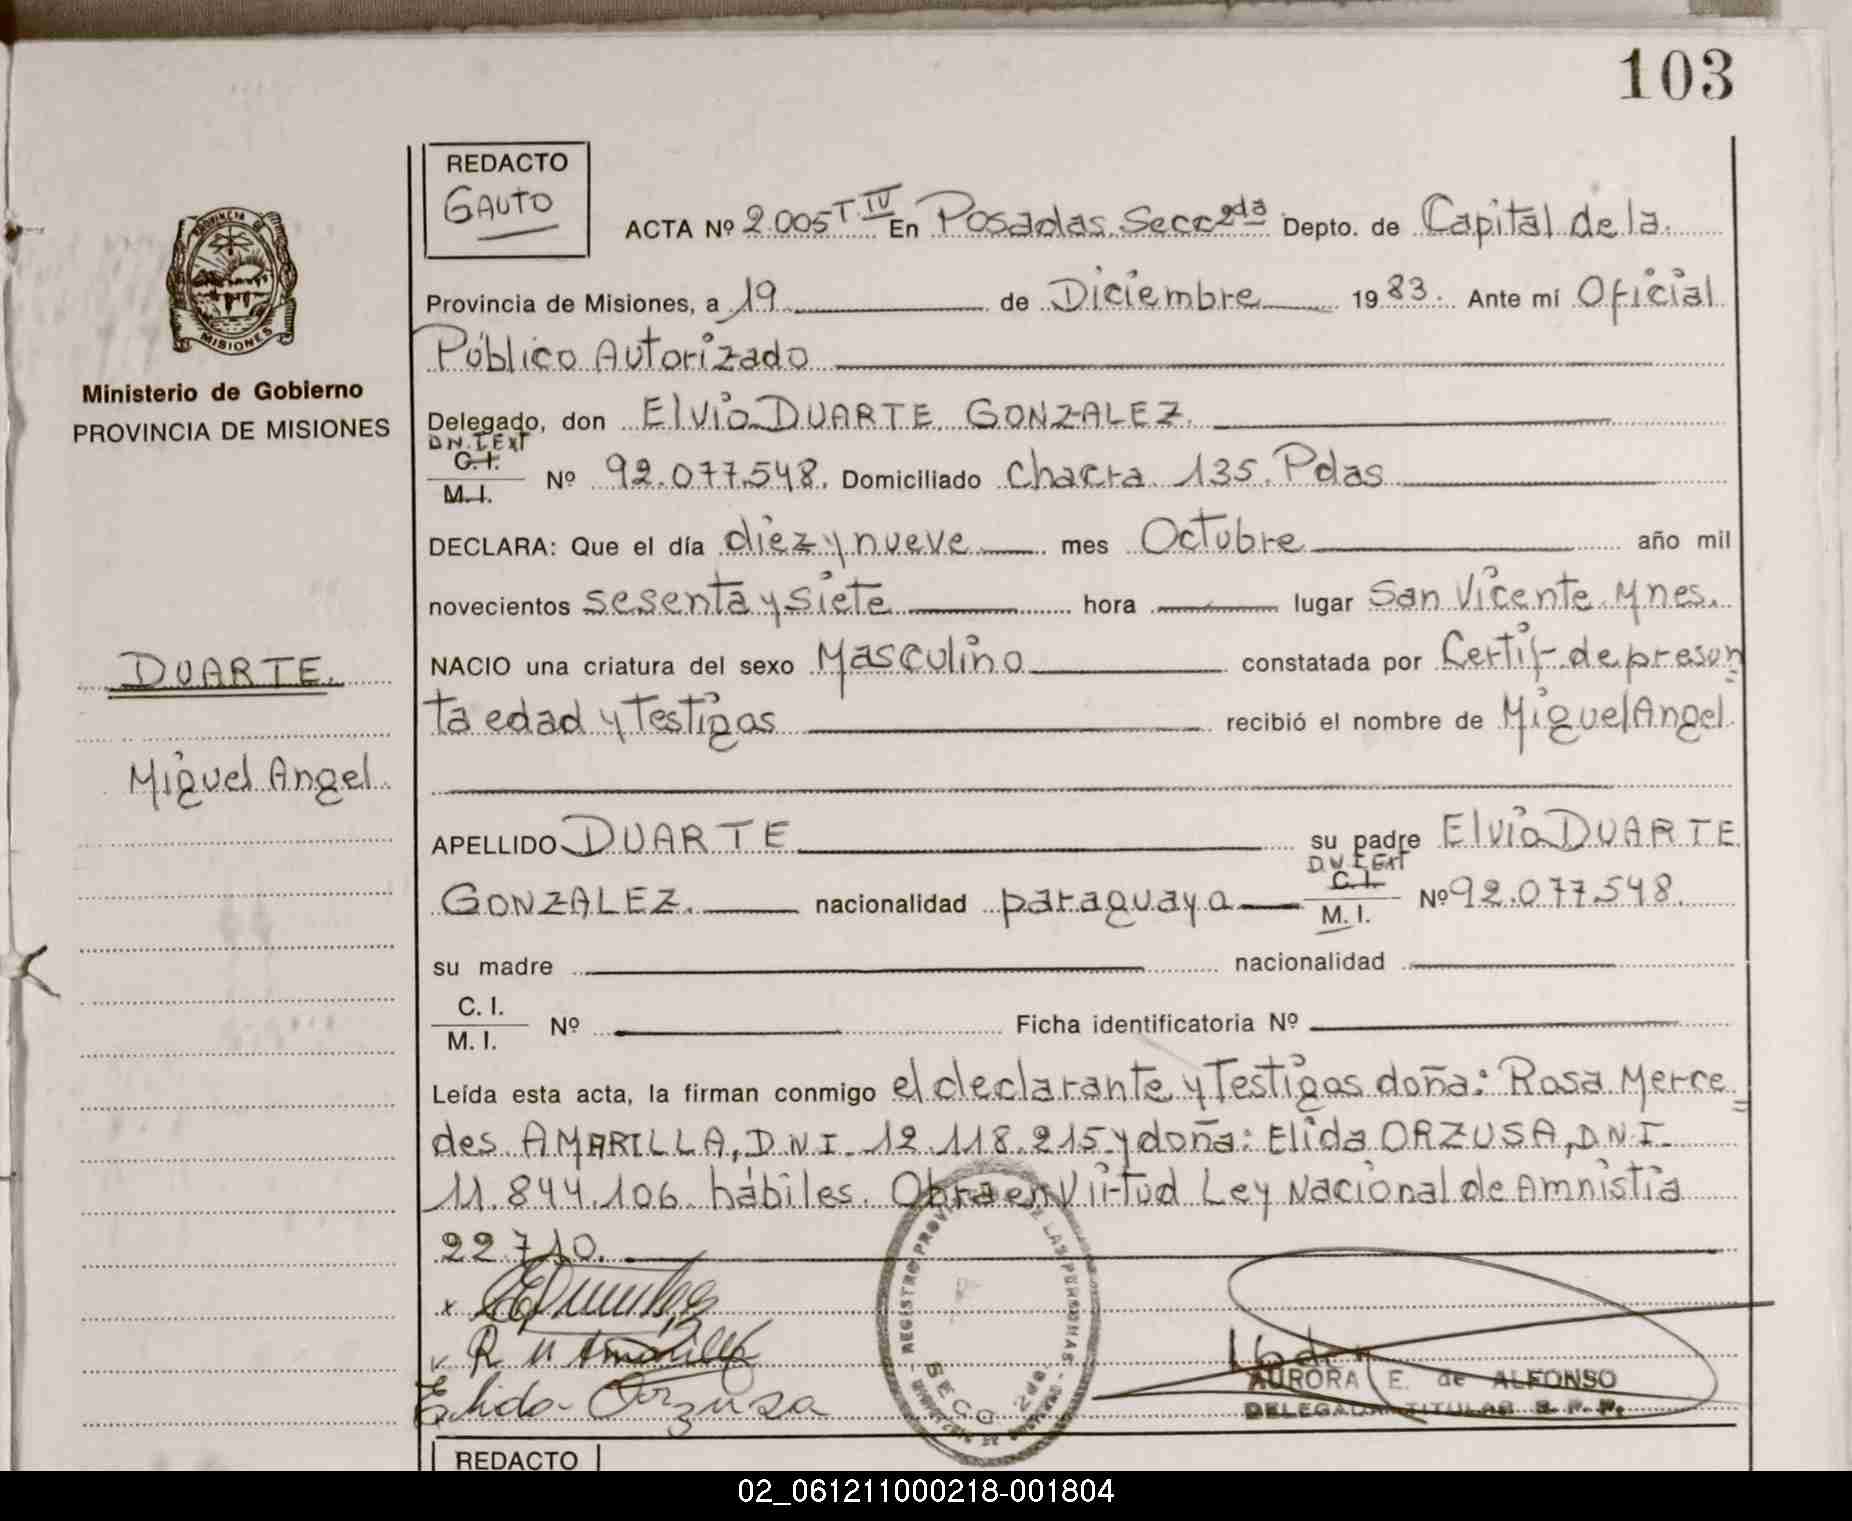 103
REDACTO
GAUTO
ACTA Nº 2.005 T. IV En Posadas. Secc 2da Depto. de Capital de la
Provincia de Misiones, a 19 de Diciembre 1983. Ante mí Oficial
Público Autorizado
Delegado, don Elvio DUARTE GONZALEZ.
D N. I. Ext
C. I.
M. I. Nº 92.077.548. Domiciliado Chacra 135. Pdas
DECLARA: Que el día diez y nueve mes Octubre año mil
novecientos sesenta y siete hora lugar San Vicente. Mnes.
NACIO una criatura del sexo Masculino constatada por Certif. de presun
ta edad y Testigos recibió el nombre de Miguel Angel
APELLIDO DUARTE su padre Elvio DUARTE
D N I Ext
C. I.
GONZALEZ. nacionalidad paraguaya M. I. Nº 92.077.548.
su madre nacionalidad
C. I.
M. I. Nº Ficha identificatoria Nº
Leída esta acta, la firman conmigo el declarante y Testigos doña: Rosa Merce
des AMARILLA, D.N.I. 12.118.215 y doña: Elida ORZUSA, D.N.I.
11.844.106 hábiles. Obra en Virtud Ley Nacional de Amnistia
22.710.
R M Amarilla
Elida Orzusa
AURORA E. de ALFONSO
DELEGADA TITULAR R. P. P.
REGISTRO PROVINCIAL DE LAS PERSONAS
SECC 2da.
REDACTO
PROVINCIA DE
MISIONES
Ministerio de Gobierno
PROVINCIA DE MISIONES
DUARTE.
Miguel Angel.
02_061211000218-001804